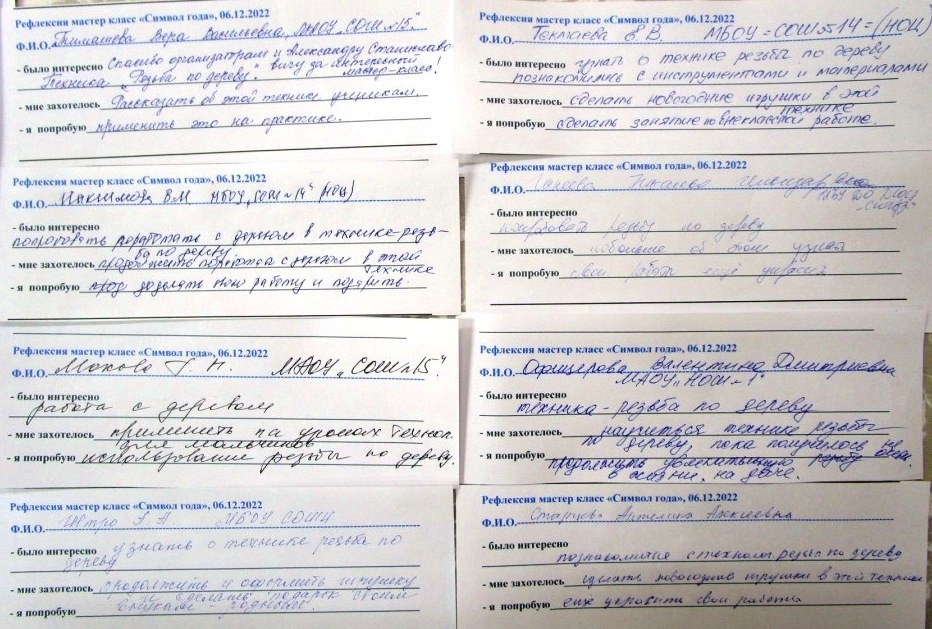 Рефлексия мастер класс «Символ года», 06.12.2022
Ф.И.О. Тимашева Вера Васильевна, МАОУ „СОШ №15"
- было интересно Спасибо организаторам и Александру Станиславо
Техника „Резьба по дереву." вичу за интересный
мастер-класс!
- мне захотелось Рассказать об этой технике ученикам.
- я попробую применить это на практике.
Рефлексия мастер класс «Символ года», 06.12.2022
Ф.И.О. Е.В. МБОУ «СОШ №14» (НОЦ)
- было интересно узнать о технике резьбы по дереву
познакомились с инструментами и материалами
- мне захотелось сделать новогодние игрушки в этой
технике
- я попробую сделать занятие по внеклассной работе.
Рефлексия мастер класс «Символ года», 06.12.2022
Ф.И.О. В.М МБОУ „СОШ №14" (НОЦ)
- было интересно
попробовать поработать с деревом в технике-резь-
ба по дереву
- мне захотелось продолжить с деревом в этой
технике
- я попробую доделать свою работу и подарить.
Рефлексия мастер класс «Символ года», 06.12.2022
Ф.И.О. МБУ ДО
попробовать резьбу по дереву
- мне захотелось побольше об этом узнать
- я попробую свои работ ещё украсить
Рефлексия мастер класс «Символ года», 06.12.2022
Ф.И.О. Т. Н. МАОУ „СОШ №15"
- было интересно
работа с деревом
- мне захотелось применить на уроках технол.
для мальчиков
- я попробую использование резьбы по дереву.
Рефлексия мастер класс «Символ года», 06.12.2022
Ф.И.О. Офицерова Валентина Дмитриевна
МАОУ „НОШ №1"
- было интересно
техника - резьба по дереву
- мне захотелось научиться технике резьбы
по дереву, пока получилось не очень.
- я попробую продолжить увлекательную резьбу
в жизни, на даче.
Рефлексия мастер класс «Символ года», 06.12.2022
Ф.И.О. МБОУ СОШ
- было интересно узнать о технике резьба по
дереву
- мне захотелось продолжить и оформить игрушку
и сделать подарок своим
- я попробую внукам родным.
Рефлексия мастер класс «Символ года», 06.12.2022
Ф.И.О. Ангелина Алексеевна
- было интересно
с техникой резьбы по дереву
- мне захотелось сделать новогодние игрушки в этой технике
- я попробую ещё украсить свои работы